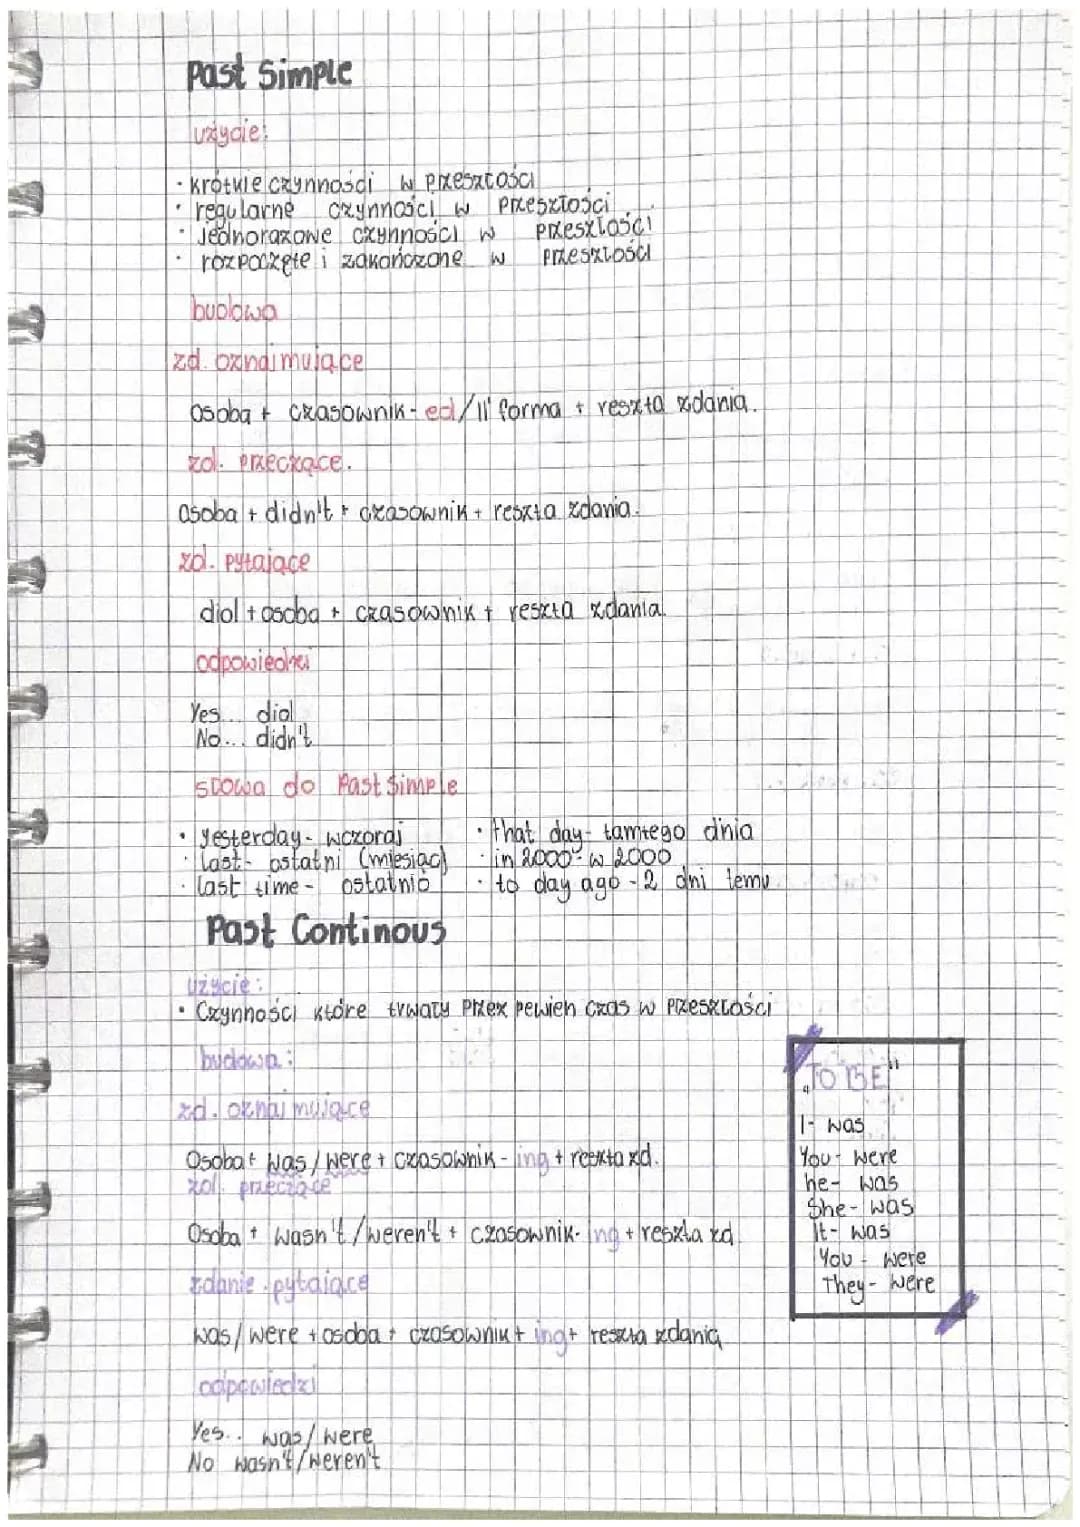 Past Simple
użycie:
· krótkie czynności w przeszłości
· regularne czynności w przeszłości
· jednorazowe czynności w przeszłości
· rozpoczęte i zakończone w przeszłości
budowa
zd. oznajmujące
osoba + czasownik - ed/II forma + reszta zdania.
zd. przeczące.
osoba + didn't + czasownik + reszta zdania.
zd. pytające
did + osoba + czasownik + reszta zdania.
odpowiedzi
Yes... did
No... didn't
słowa do Past Simple
· yesterday - wczoraj
· last - ostatni (miesiąc)
· last time - ostatnio
· that day - tamtego dnia
· in 2000 - w 2000
· to day ago - 2 dni temu
Past Continous
użycie:
· Czynności które trwały przez pewien czas w przeszłości
budowa:
zd. oznajmujące
Osoba + was/were + czasownik - ing + reszta zd.
zd. przeczące
Osoba + wasn't/weren't + czasownik - ing + reszta zd
zdanie pytające
was/were + osoba + czasownik + ing + reszta zdania
odpowiedzi
Yes.. was/were
No wasn't/weren't
„TO BE"
I - was
You - were
he - was
She - was
It - was
You - were
They - were